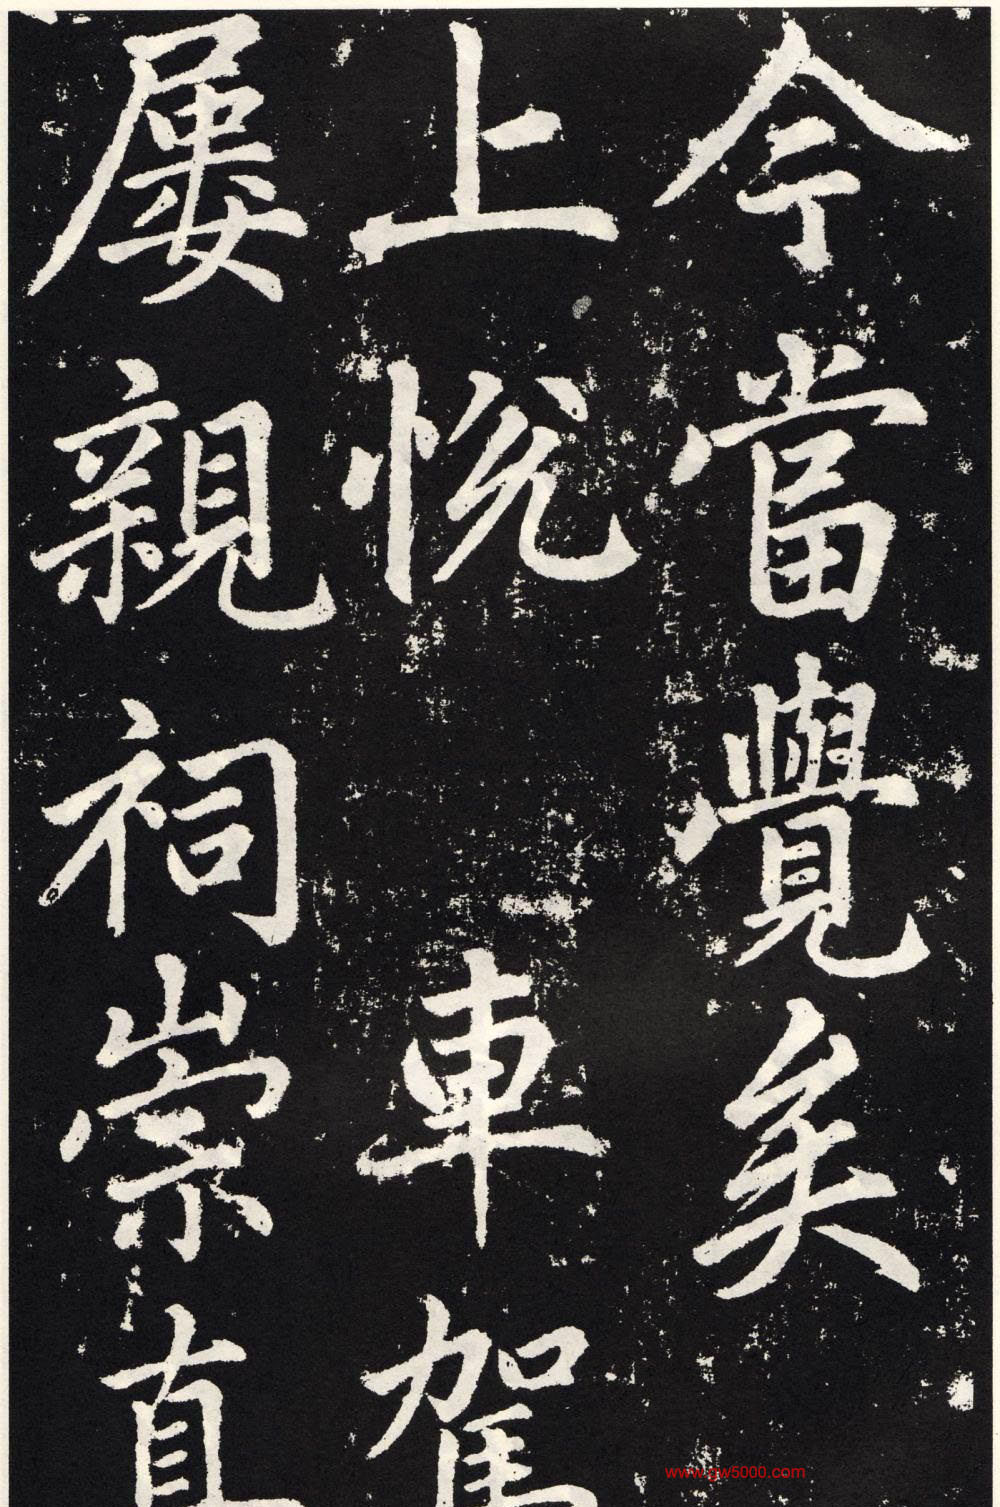 今當覺矣
上悅車駕
屢親祠崇真
www.gw5000.com